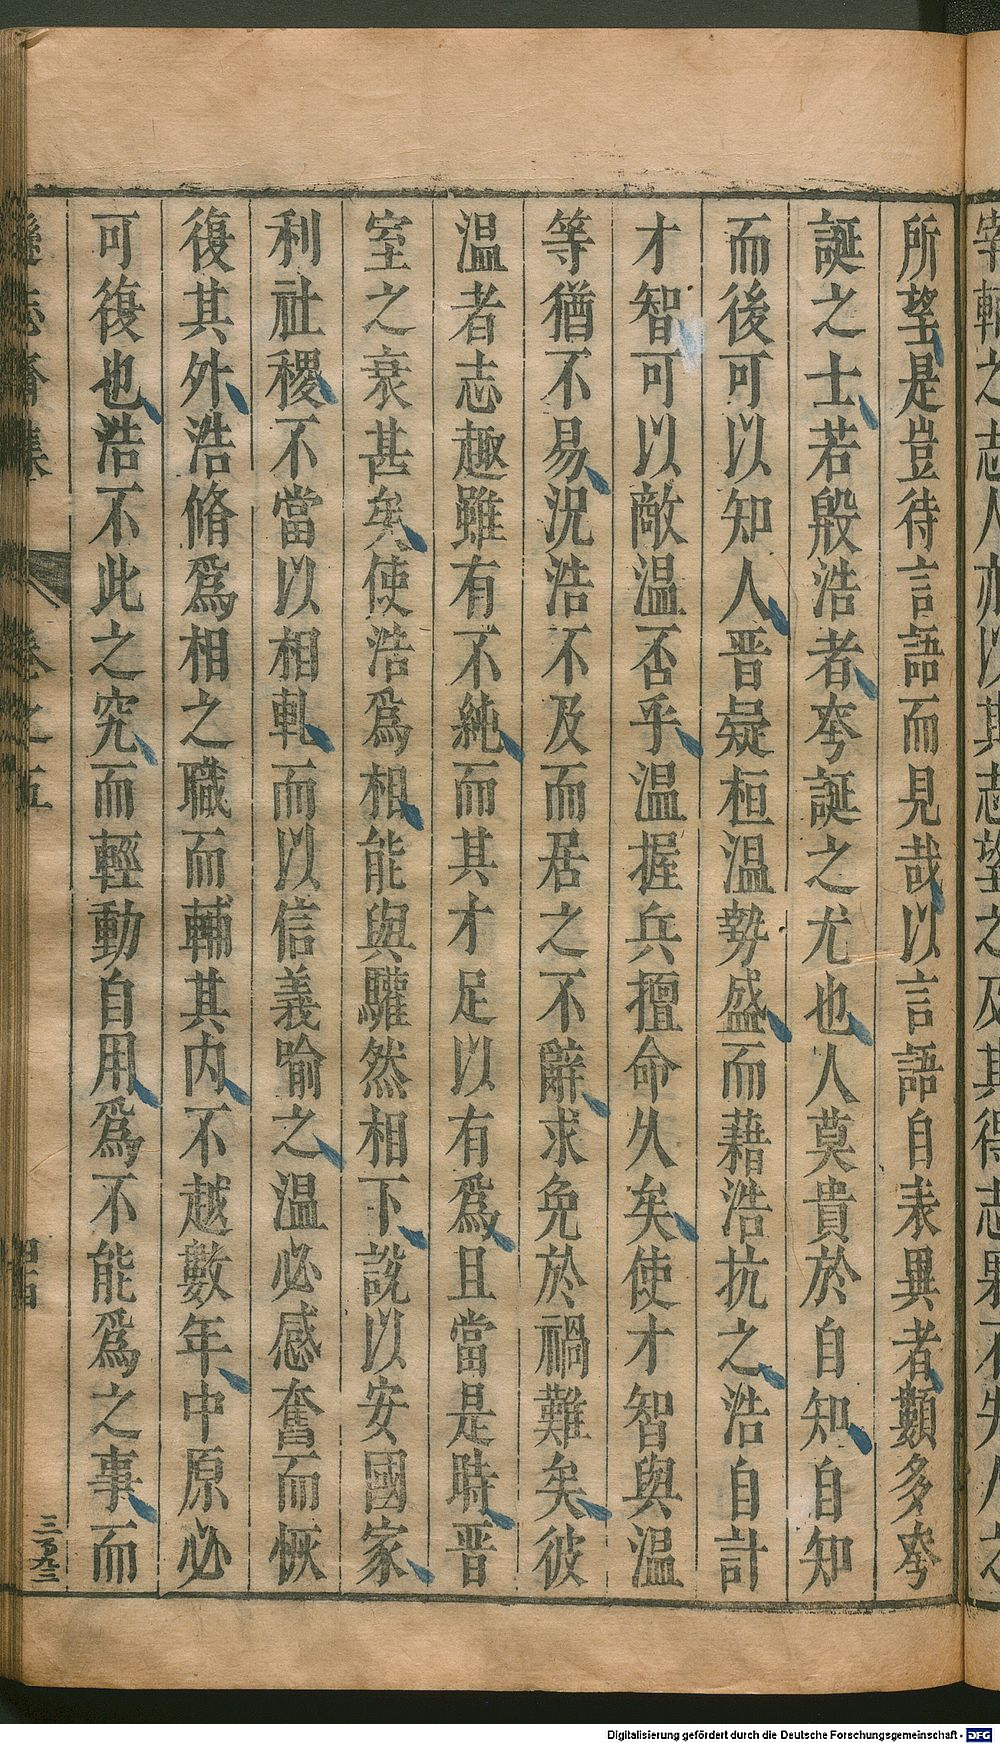 所望是豈待言語而見哉以言語自表異者類多夸
誕之士若殷浩者夸誕之尤也人莫貴於自知自知
而後可以知人晋疑桓温勢盛而藉浩抗之浩自計
才智可以敵温否乎温握兵擅命久矣使才智與温
等猶不易況浩不及而居之不辭求免於禍難矣彼
温者志趣雖有不純而其才足以有爲且當是時晋
室之衰甚矣使浩爲相能與驩然相下說以安國家
利社稷不當以相軋而以信義喻之温必感奮而恢
復其外浩脩爲相之職而輔其内不越數年中原必
可復也浩不此之究而輕動自用爲不能爲之事而
遜志齋集
卷之五
三百九二
Digitalisierung gefördert durch die Deutsche Forschungsgemeinschaft - DFG